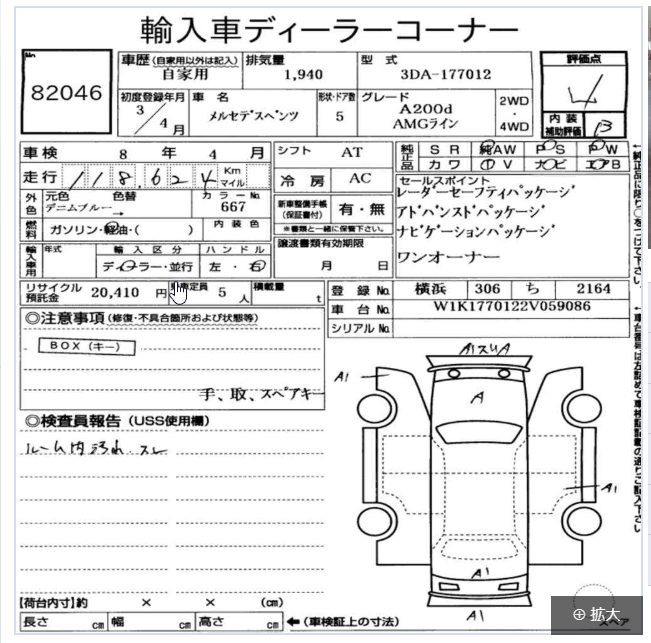 輸入車ディーラーコーナー
No.
82046
車歴 (自家用以外は記入)
自家用
排気量
1,940
型 式
3DA-177012
評価点
4
初度登録年月
3/4月
車 名
メルセデスベンツ
形状・ドア数
5
グレード
A200d
AMGライン
2WD
・
4WD
内装
補助評価
B
車検 8 年 4 月
シフト AT
純正品
SR 純AW PS PW
カワ TV ナビ エアB
走行 118,624 Km
マイル
冷房 AC
セールスポイント
レーダーセーフティパッケージ
アドバンスドパッケージ
ナビゲーションパッケージ
ワンオーナー
外色
元色 色替
デニムブルー→
カラーNo.
667
新車整備手帳
(保証書付)
有・無
※書類と一緒に保管下さい。
燃料
ガソリン・軽油・( )
内装色
譲渡書類有効期限
月 日
輸入車用
年式
輸入区分
ディーラー・並行
ハンドル
左・右
リサイクル
預託金
20,410 円
乗車定員
5 人
積載量
t
登録No. 横浜 306 ち 2164
車台No. W1K1770122V059086
シリアルNo.
◎注意事項 (修復・不具合箇所および状態等)
BOX(キー)
手、取、スペアキー
◎検査員報告 (USS使用欄)
ルーム内汚れ、スレ
A1
A1
A
A1
A1
A1
【荷台内寸】約 × × (cm)
長さ cm 幅 cm 高さ cm
←(車検証上の寸法)
スペア
拡大
←純正品に限り○をつけて下さい。
←車台番号は左詰めで車検証記載の通りご記入下さい。